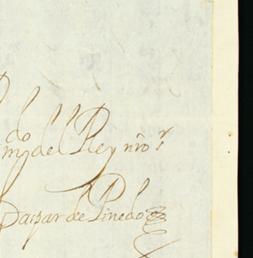 do
m del Rey nro sr
Gaspar de Pinedo